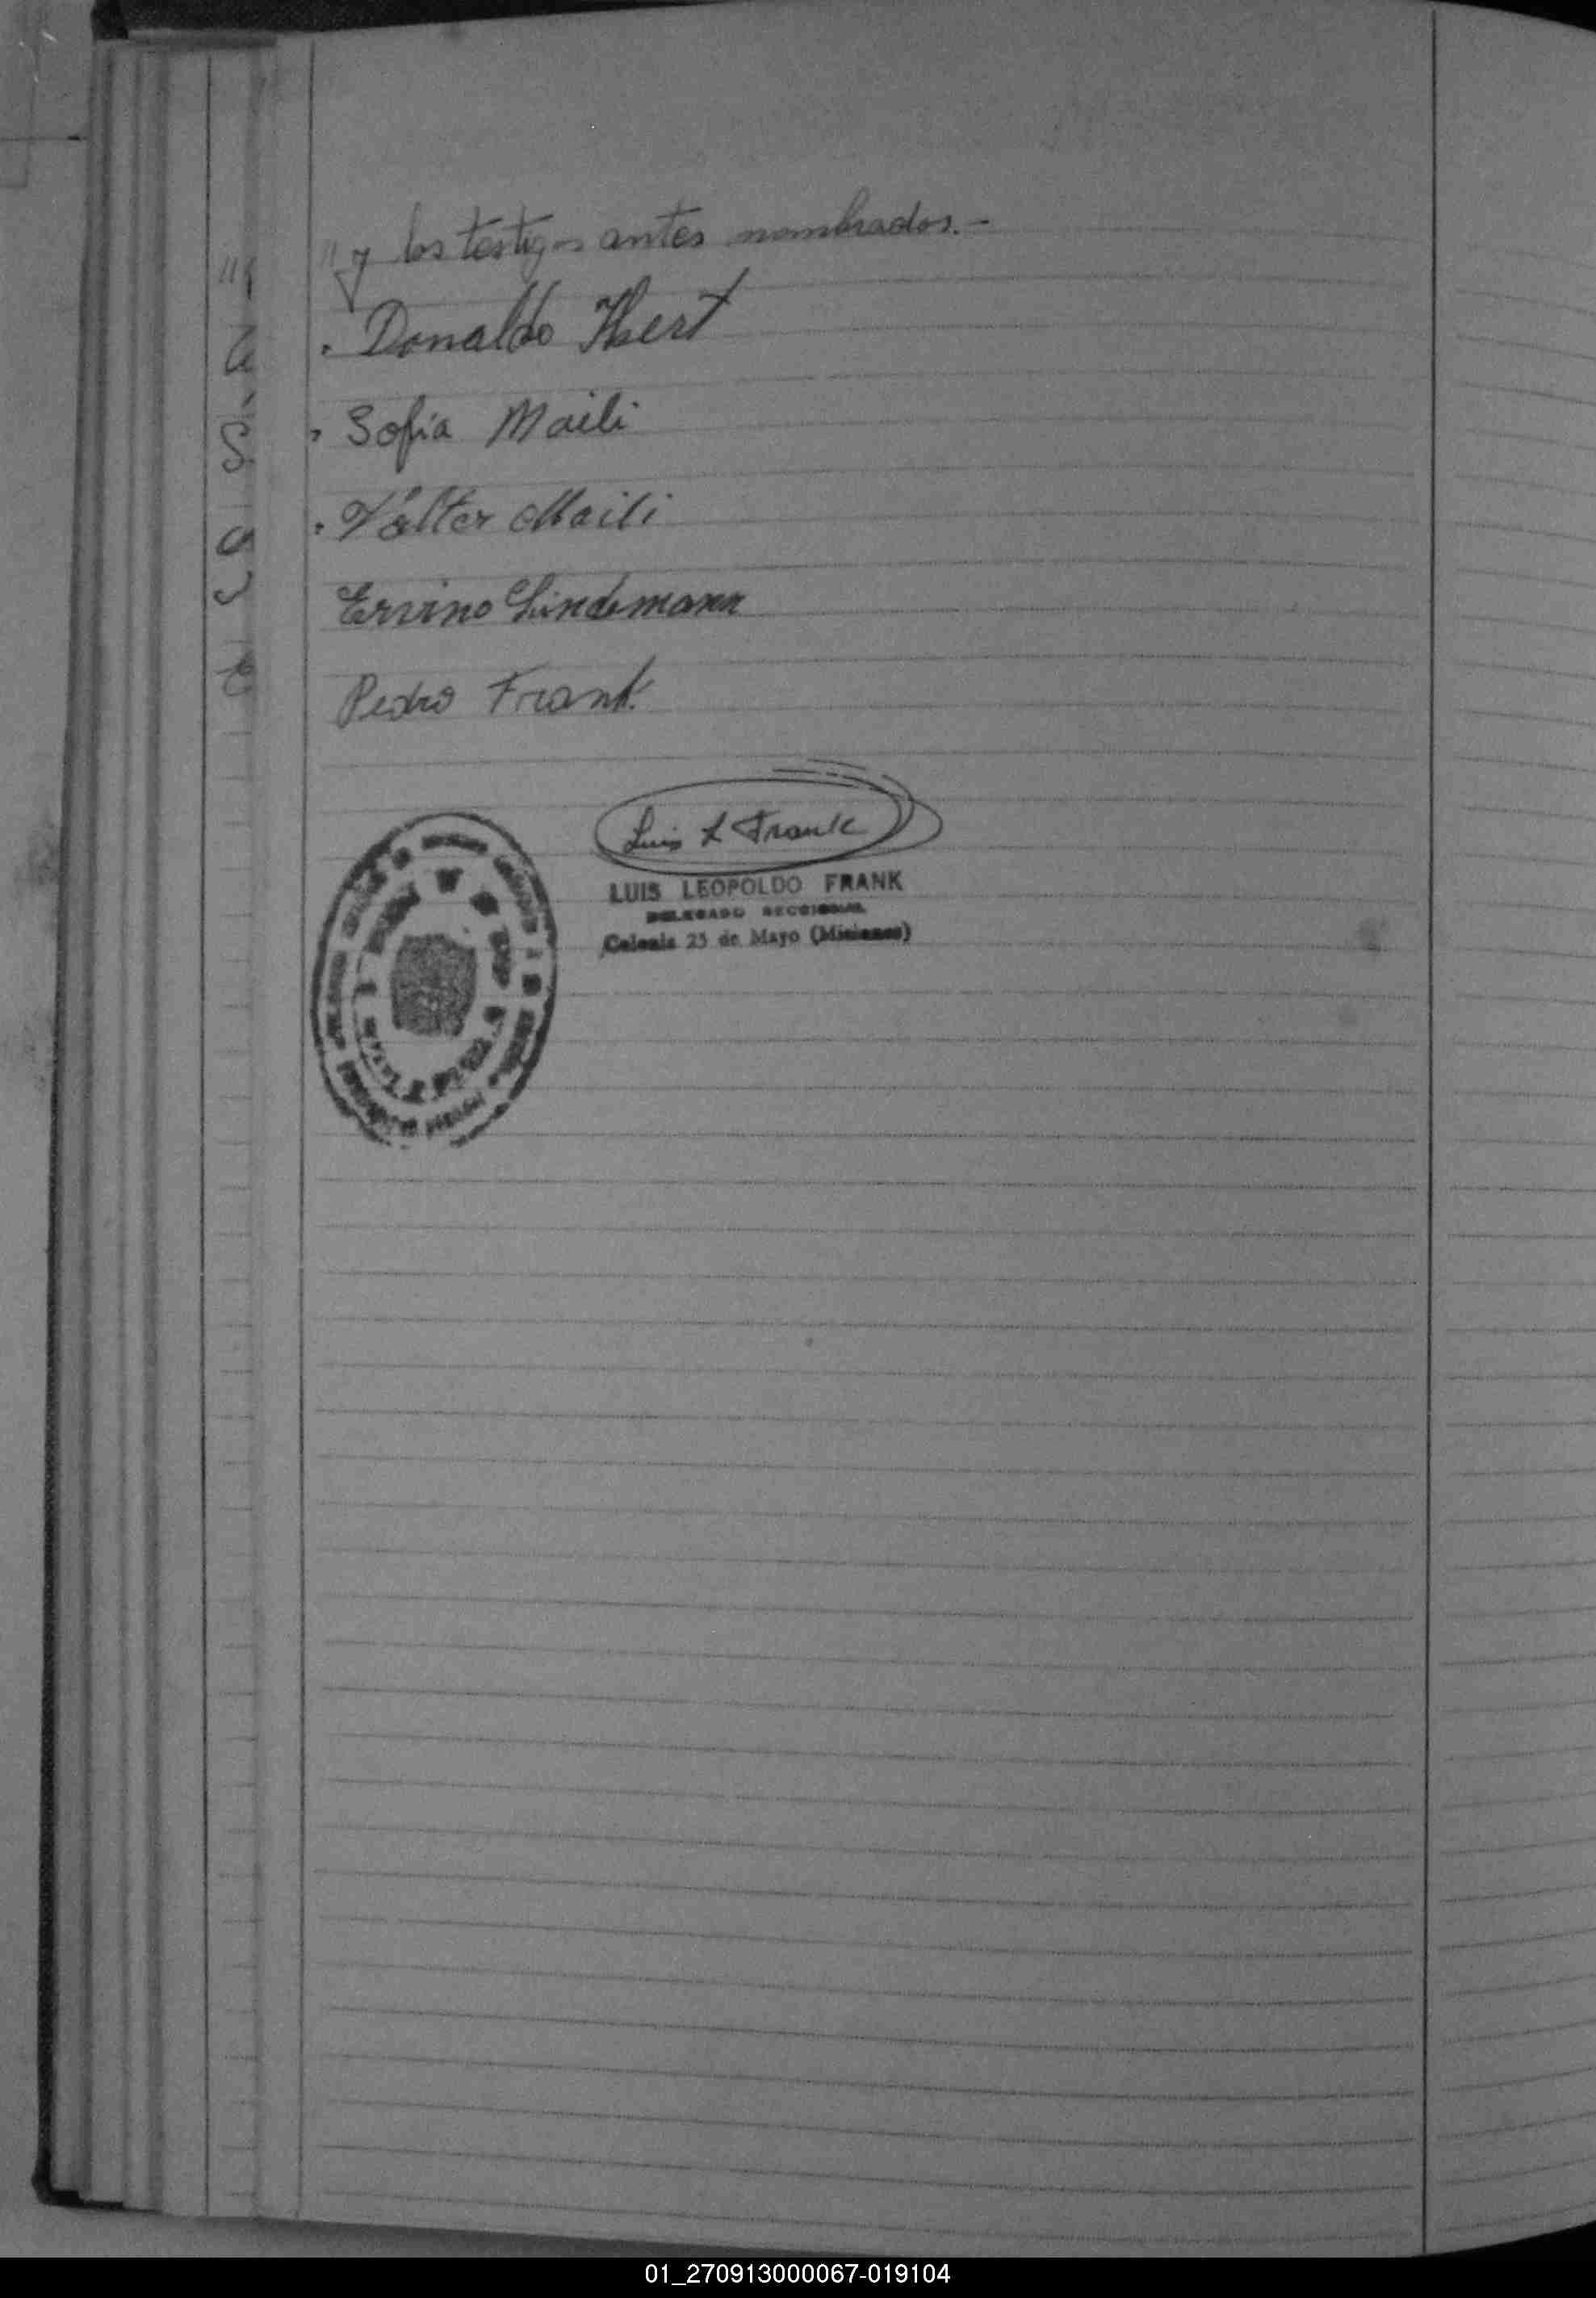 " y los testigos antes nombrados.-
Donaldo Hbert
Sofia Maili
Válter Maili
Ervino Lindemann
Pedro Frank.
Luis L Frank
LUIS LEOPOLDO FRANK
DELEGADO SECCIONAL
Colonia 25 de Mayo (Misiones)
01_270913000067-019104